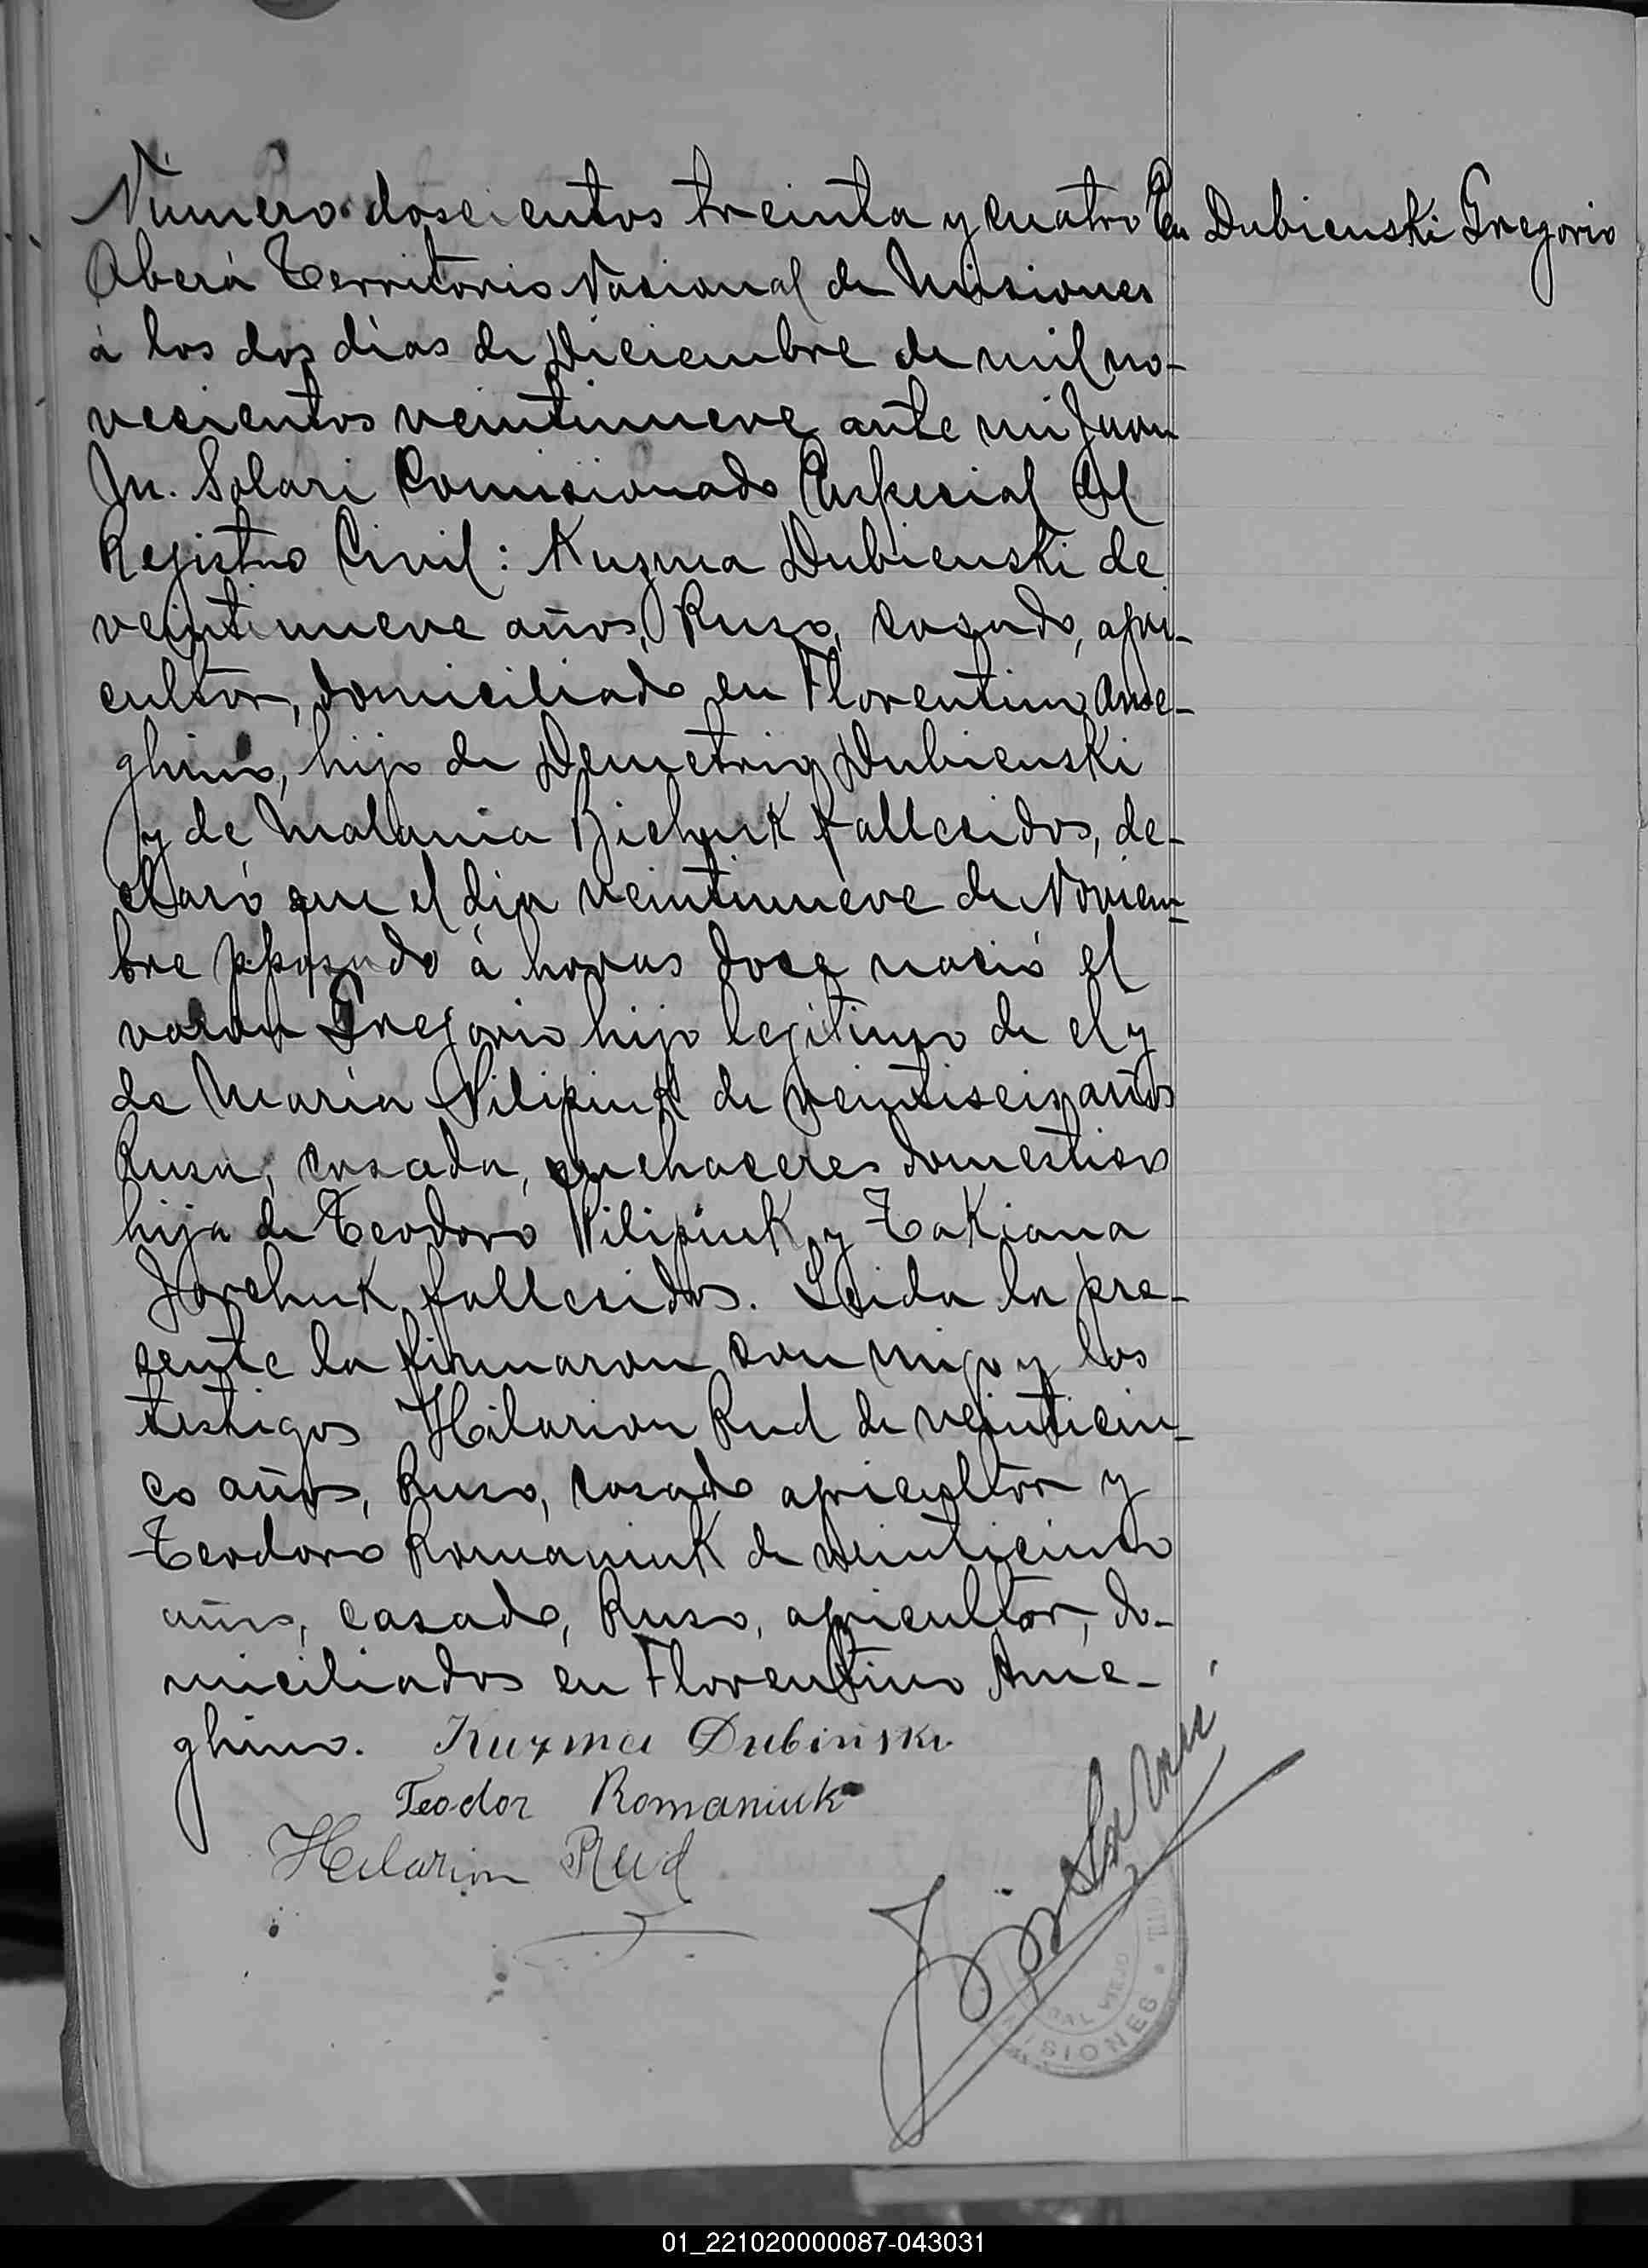 Número doscientos treinta y cuatro En
Dubienski Gregorio
Oberá Territorio Nacional de Misiones
á los dos días de Diciembre de mil no-
vecientos veintinueve ante mi Juan
Jn. Solari Comisionado Especial del
Registro Civil: Kuzma Dubienski de
veintinueve años, Ruso, casado, agri-
cultor, domiciliado en Florentino Ame-
ghino, hijo de Demetrio Dubienski
y de Malania fallecidos, de-
claró que el dia veintinueve de Noviem-
bre ppasado á horas doce nació el
varon Gregorio hijo legitimo de el y
de María Pilipiuk de veintiseis años
Rusa, casada, quehaceres domesticos
hija de Teodoro Pilipiuk y Takiana
Jorchuk fallecidos. Leida la pre-
sente la firmaron con migo y los
testigos Hilarion Rud de veinticin-
co años, Ruso, casado agricultor y
Teodoro Romaniuk de veinticinco
años, casado, Ruso, agricultor, do-
miciliados en Florentino Ame-
ghino. Kuzma Dubinski
Teodor Romaniuk
Hilarion Rud
MISIONES
01_221020000087-043031